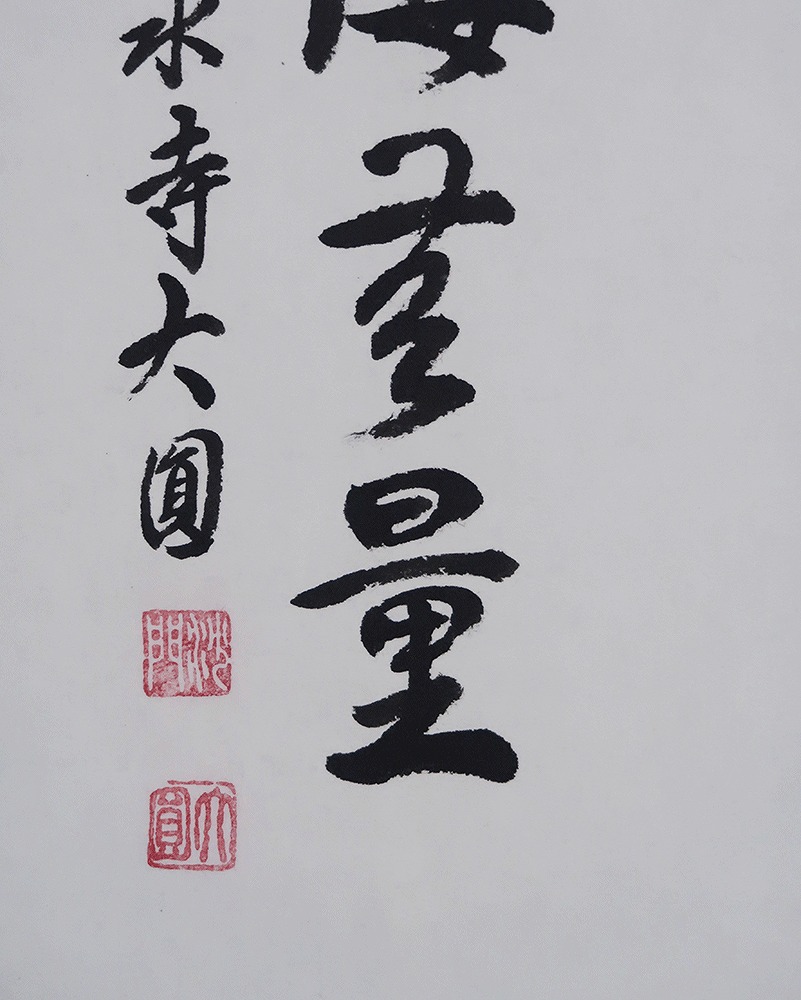 海無量
水寺大圓
沙門
大圓